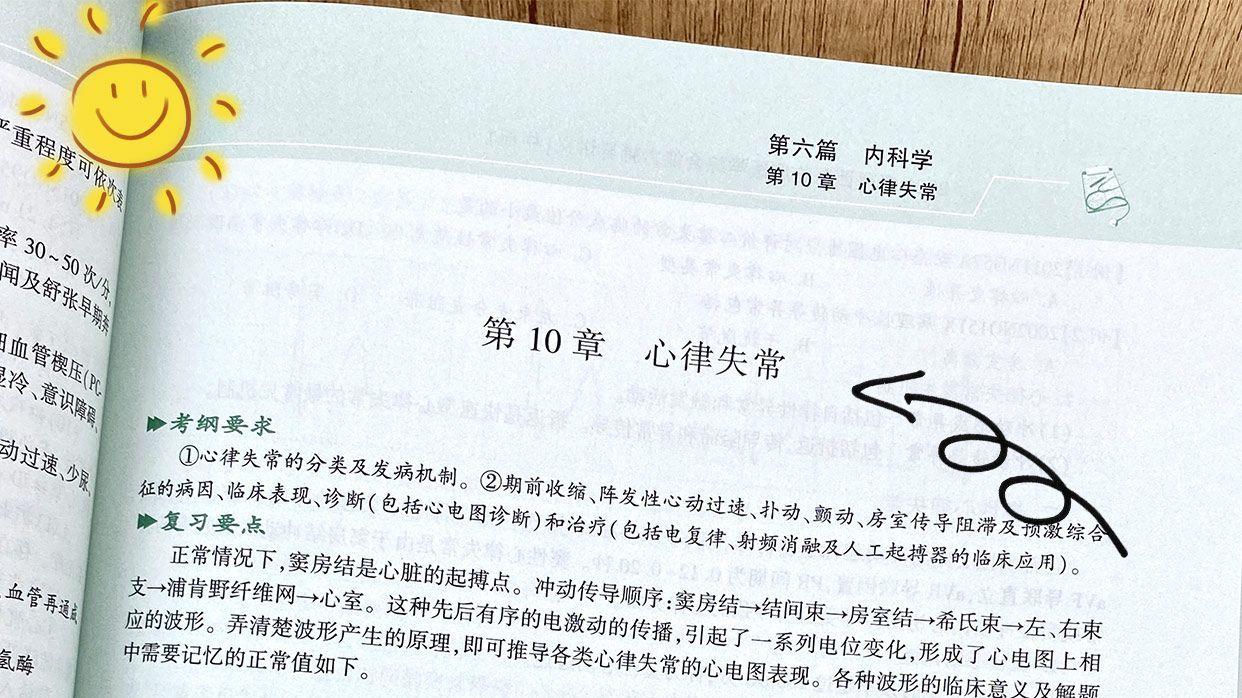 严重程度可依次表
率 30~50 次/分,
闻及舒张早期奔
细血管楔压(PC-
湿冷、意识障碍、
动过速、少尿、
血管再通或
氨酶
第六篇 内科学
第 10 章 心律失常
第 10 章 心律失常
▶▶考纲要求
①心律失常的分类及发病机制。②期前收缩、阵发性心动过速、扑动、颤动、房室传导阻滞及预激综合
征的病因、临床表现、诊断(包括心电图诊断)和治疗(包括电复律、射频消融及人工起搏器的临床应用)。
▶▶复习要点
正常情况下,窦房结是心脏的起搏点。冲动传导顺序:窦房结→结间束→房室结→希氏束→左、右束
支→浦肯野纤维网→心室。这种先后有序的电激动的传播,引起了一系列电位变化,形成了心电图上相
应的波形。弄清楚波形产生的原理,即可推导各类心律失常的心电图表现。各种波形的临床意义及解题
中需要记忆的正常值如下。